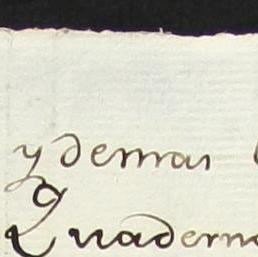 y demas
Quaderno